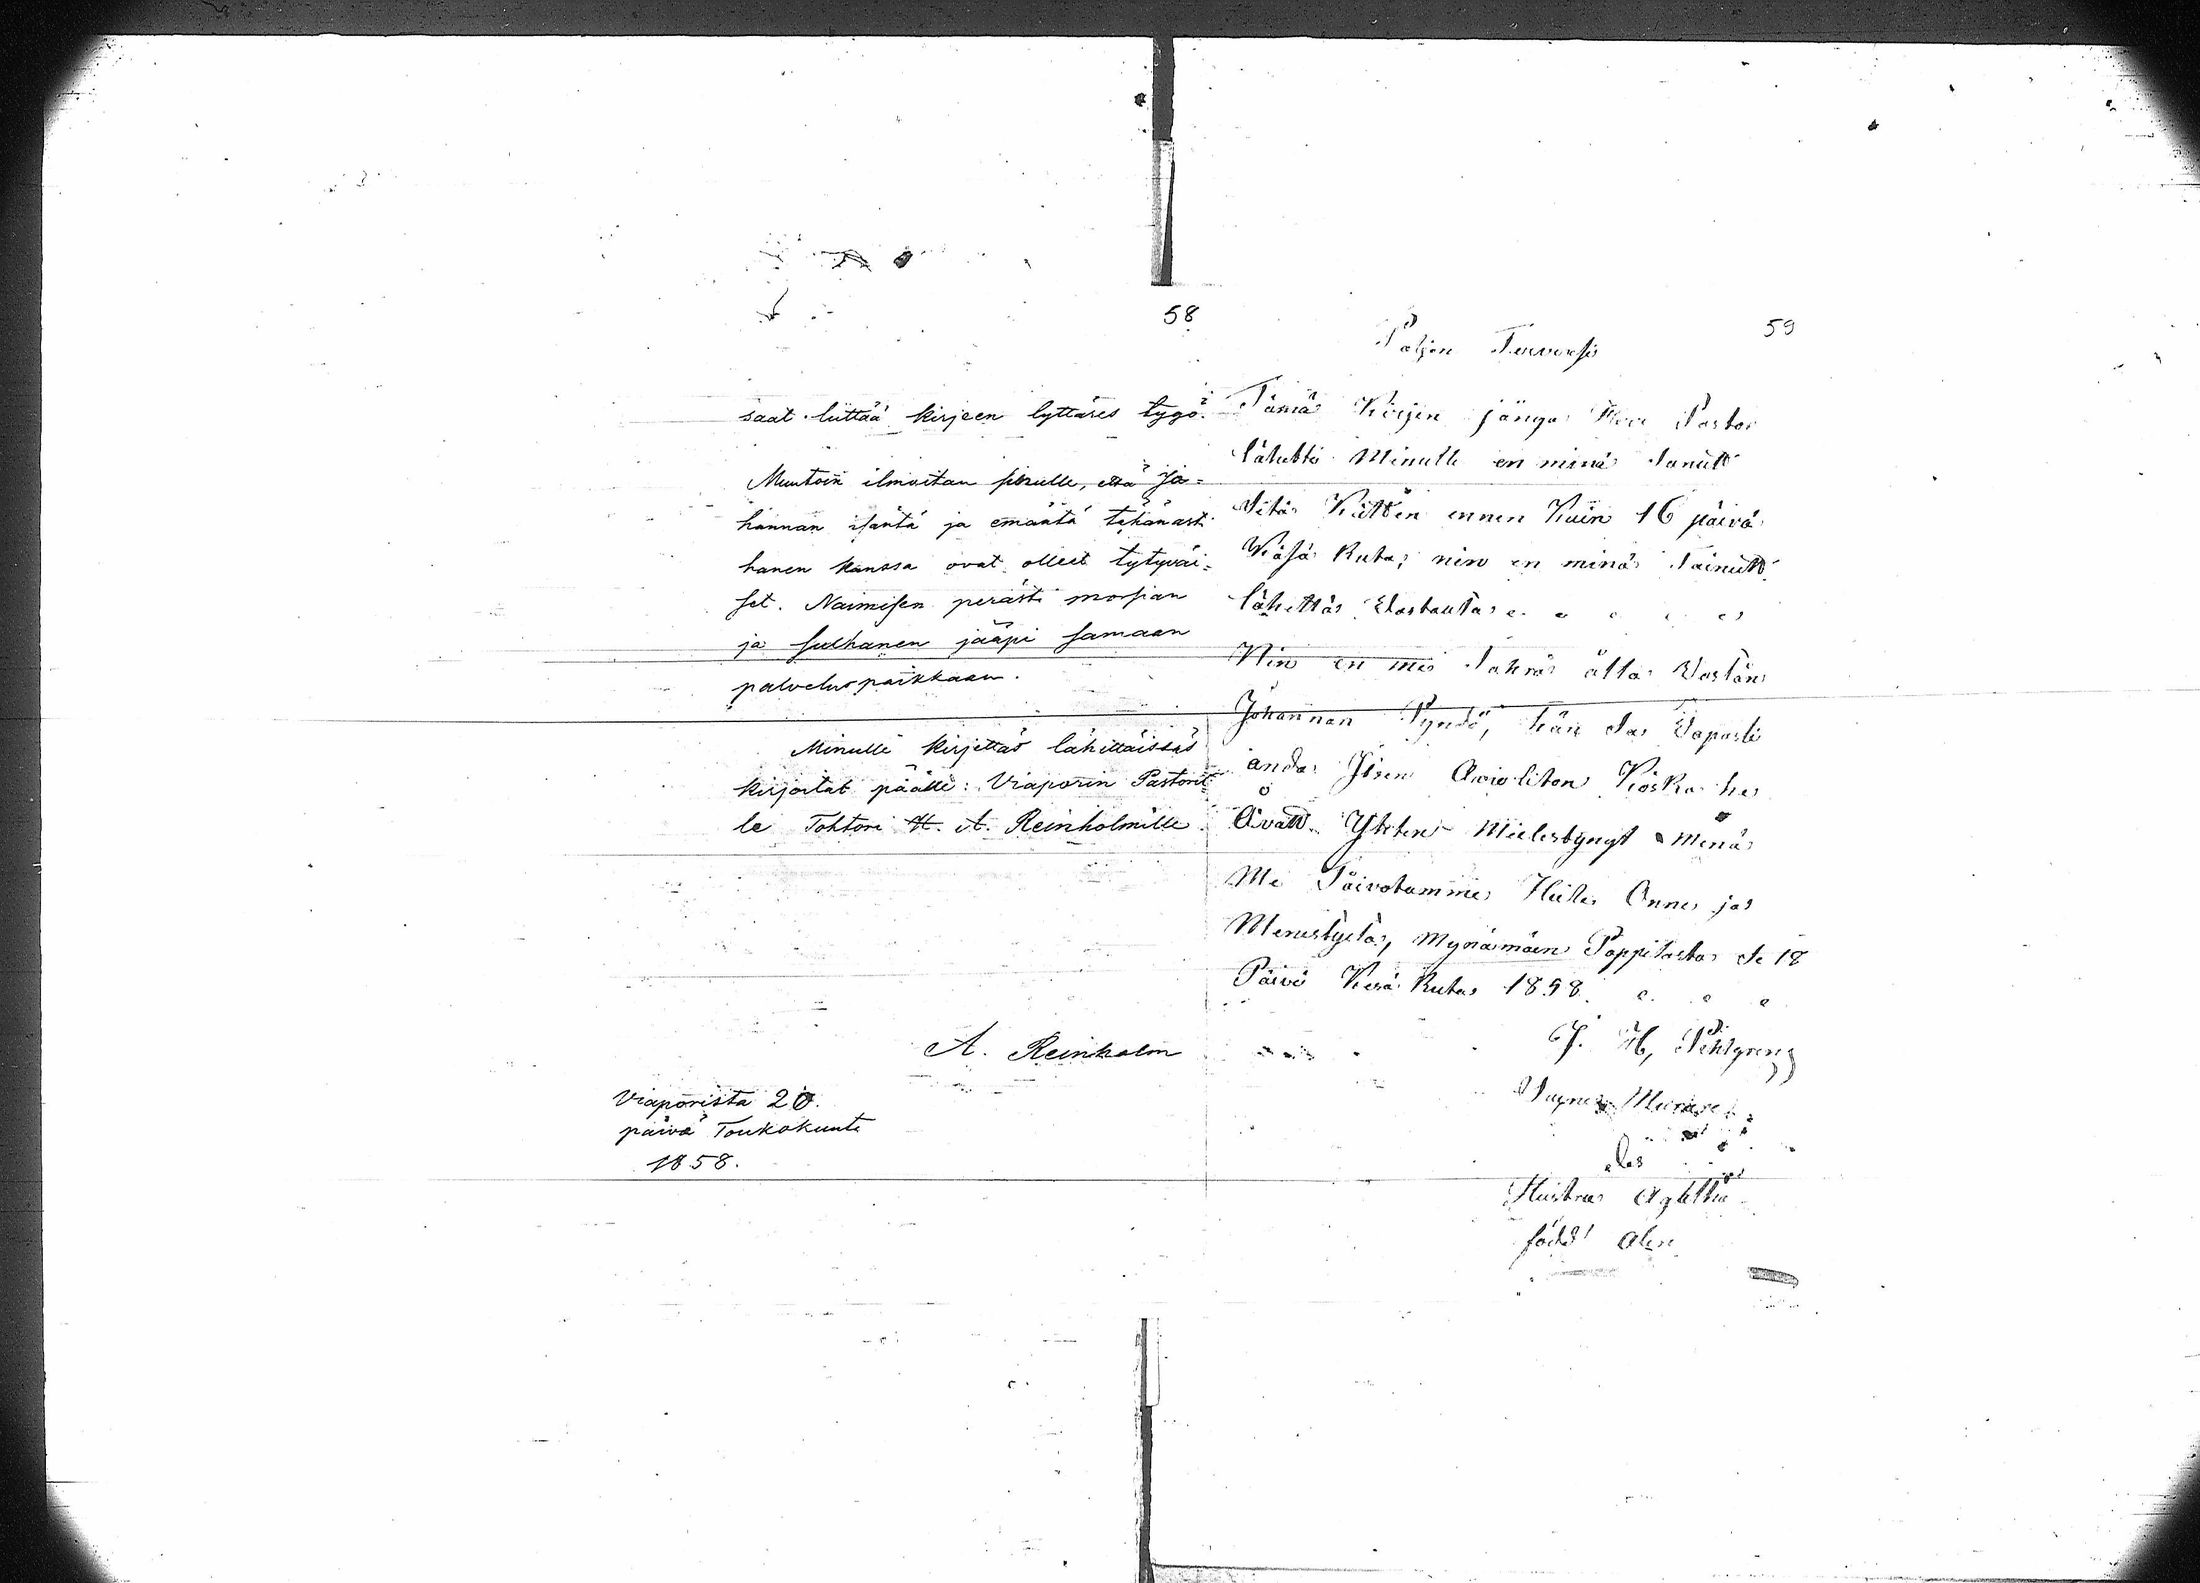 58
saat liittää kirjeen lyttäres tygö.
Muutoin ilmoitan sinulle, että Jo=
hannan isäntä ja emäntä tähänasti
hänen kanssa ovat olleet tytyväi=
set. Naimisen perästi morsian
ja sulhanen jääpi samaan
palveluspaikkaan.
Minulle kirjettäs lähättäissäs
kirjoitat päälle: Viaporin Pastoril=
le Tohtori H. A. Reinholmille.
A. Reinholm
Viaporista 20.
päivä Toukokuuta
1858.
59
Paljon Terveysi
Tämä Kirjen jänga Herr Pastor
lähetti Minulle en minä Sanutt
Sitä Kätten ennen Kuin 16 päivä
Käsä Kuta; nin en minä Tainutt
lähettä Vastauta
Nin en mie Tahra ålla Vastan
Johannan Pyndö, hän Sa Vapasti
anda Jisen Avioliton Käska he
Ovatt Yhten Mielestyngt Menä
Me Toivotamme Heile Onne ja
Menestystä, Mynämäen Pappilasta Se 18
Päivä Kesä Kuta 1858.
J. H, Pihlgren
Hustru Agatha
född Alen